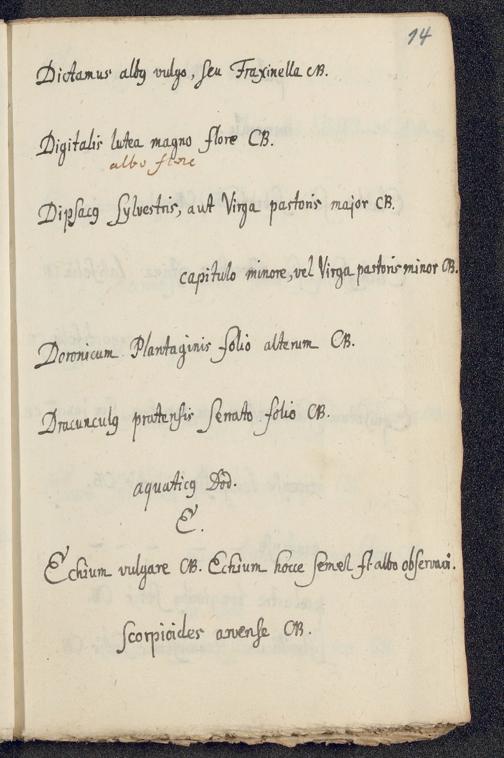 14
Dictamus albꝰ vulgo, seu Fraxinella CB.
Digitalis lutea magno flore CB.
albo flore
Dipsacꝰ sylvestris, aut Virga pastoris major CB.
capitulo minore, vel Virga pastoris minor CB.
Doronicum Plantaginis folio alterum CB.
Dracunculꝰ pratensis serrato folio CB.
aquaticꝰ Dod.
E.
Echium vulgare CB. Echium hocce semel fl. albo observavi.
scorpioides arvense CB.